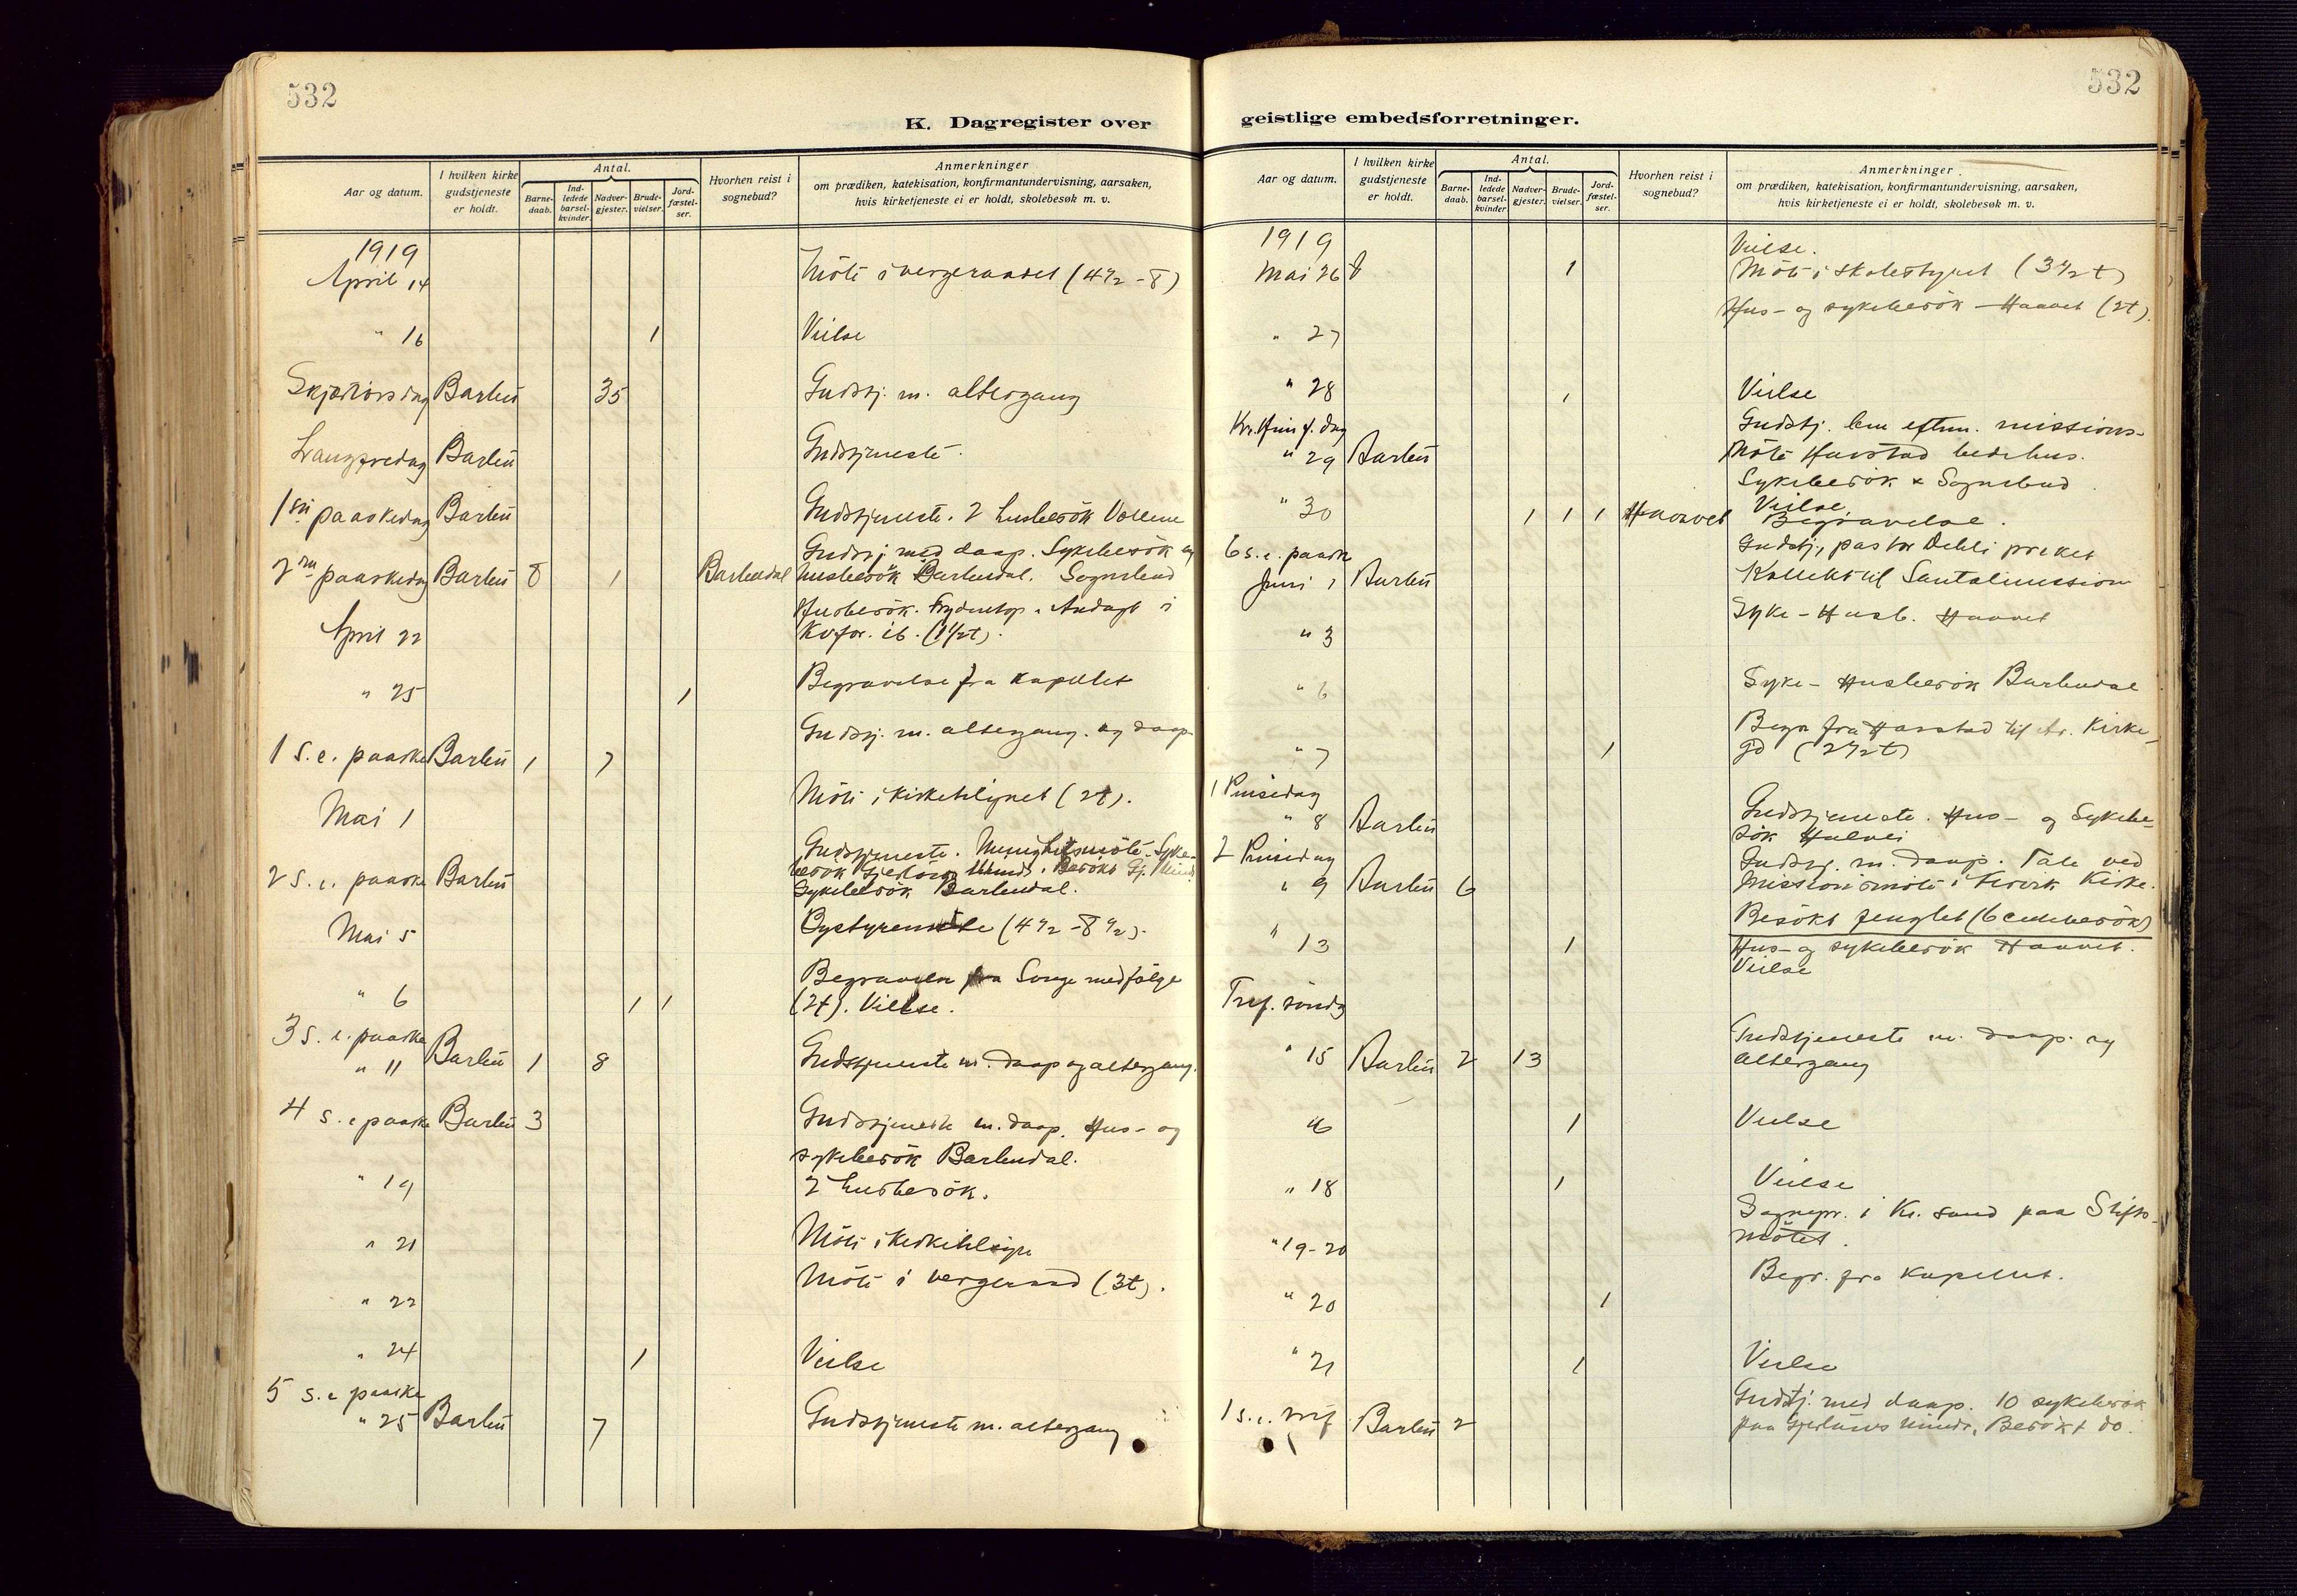 532
K. Dagregister over
Aar og datum.
I hvilken kirke gudstjeneste er holdt.
Antal.
Barne-daab.
Ind-ledede barsel-kvinder.
Nadver-gjester.
Brude-vielser.
Jord-fæstel-ser.
Hvorhen reist i sognebud?
Anmerkninger
om prædiken, katekisation, konfirmantundervisning, aarsaken,
hvis kirketjeneste ei er holdt, skolebesøk m. v.
1919
April 14 Möte i vergeraadet (4½-8)
" 16 1 Vielse
Skjærtorsdag Barbu 35 Gudstj. m. altergang
Langfredag Barbu Gudstjeneste.
1ste paaskedag Barbu Gudstjeneste. 2 husbesök
Gudstj med daap. Sykebesök og
2den paaskedag Barbu 8 1 Barbudal husbesök Barbudal. Sognebud
Husbesök. Andagt i
April 22 (1½t).
" 25 1 Begravelse fra kapellet
Gudstj. m. altergang. og daap
1 S. e. paaske Barbu 1 7
Mai 1 Möte i kirketilsynet (2t).
Gudstjeneste. Menighetsmöte. Syke-
2 S. e. paaske Barbu besök
Sykebesök Barbudal.
Mai 5 Bystyremöte (4½-8½).
Begravelse fra Songe med følge
" 6 1 1 (2t). Vielse.
3 S. e. paaske
" 11 Barbu 1 8 Gudstjeneste m. daap og altergang.
4 S. e paaske Barbu 3 Gudstjeneste m. daap. Hus- og
sykebesök Barbudal.
" 19 2 husbesök.
" 21 Möte i kirketilsyn
" 22 Möte i vergeraad (3t).
" 24 1 Vielse
5 S. e paaske
" 25 Barbu 7 Gudstjeneste m. altergang
532
geistlige embedsforretninger.
Aar og datum.
I hvilken kirke gudstjeneste er holdt.
Antal.
Barne-daab.
Ind-ledede barsel-kvinder
Nadver-gjester.
Brude-vielser.
Jord-fæstel-ser.
Hvorhen reist i sognebud?
Anmerkninger.
om prædiken, katekisation, konfirmantundervisning, aarsaken,
hvis kirketjeneste ei er holdt, skolebesøk m. v.
1919 Vielse.
Mai 26 1 Möte i skolestyret (3½t)
Hus- og sykebesök - Haavet (2t).
" 27
" 28 1 Vielse
Kr. himf. dag Gudstj. missions-
" 29 Barbu möte Harstad bedehus.
Sykebesök & Sognebud
" 30 1 1 1 Haavet Vielse.
Begravelse.
6 s. e. paaske Gudstj, pastor Dehli preket
Juni 1 Barbu Kollekt til Santalmission
" 3 Syke- Husb. Haavet
" 6 Syke- Husbesök Barbudal
Begr fra Harstad til kirke-
" 7 1 gd (2½t)
1 Pinsedag
" 8 Barbu Gudstjeneste. Hus- og Sykebe-
sök
2 Pinsedag Gudstj. m. daap. Tale ved
" 9 Barbu 6 missionsmöte i kirke.
Besökt fenglet (6 cellebesök)
" 13 1 Hus- og sykebesök Haavet.
Vielse
Tref. söndg
" 15 Barbu 2 13 Gudstjeneste m. daap. og
altergang
" 16 1 Vielse
" 18 1 Vielse
" 19-20 Sognepr. i Kr. sand paa Stifts-
mötet.
" 20 1 Begr. fra kapellet.
" 21 1 Vielse
1 s. e. tref Barbu 2 Gudstj. med daap. 10 sykebesök
paa Minde. Besökt do.